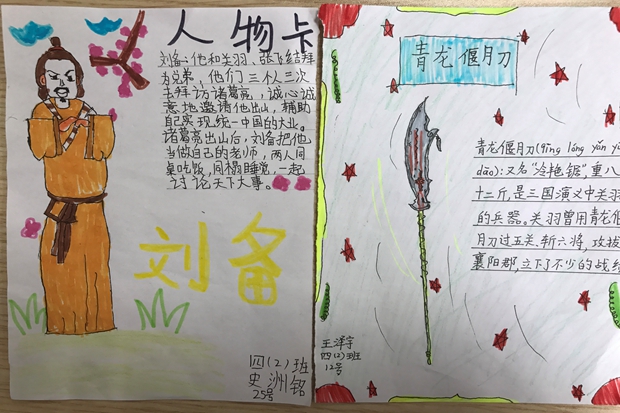 人物卡
刘备:他和关羽,张飞结拜
为兄弟,他们三个人三次
去拜访诸葛亮,诚心诚
意地邀请他出山,辅助
自己实现统一中国的大业。
诸葛亮出山后,刘备把他
当做自己的老师,两人同
桌吃饭,同榻睡觉,一起
讨论天下大事。
刘备
四(2)班
史洲铭
25号
青龙偃月刀
青龙偃月刀(qīng lóng yǎn yuè
dāo):又名“冷艳锯”,重八
十二斤,是三国演义中关羽
的兵器。关羽曾用青龙偃
月刀过五关、斩六将,攻拔
襄阳郡,立下了不少的战
王泽宇
四(2)班
12号